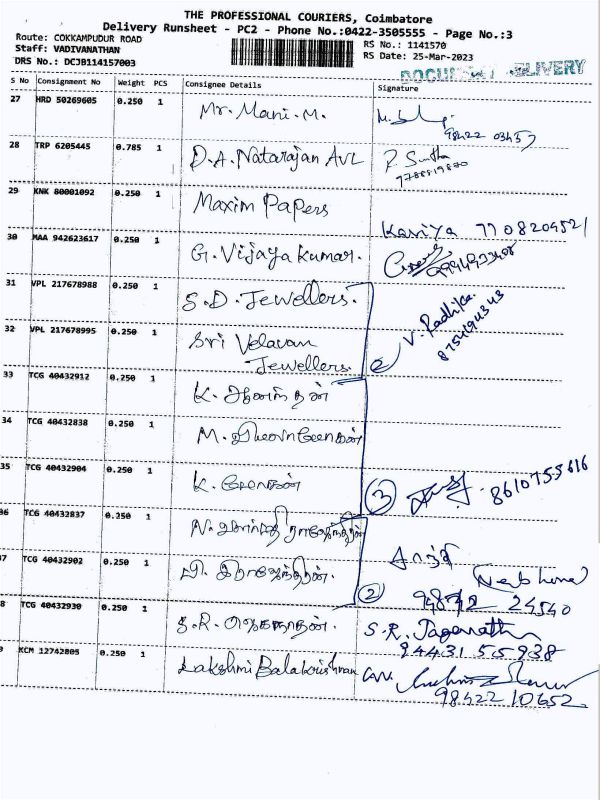 THE PROFESSIONAL COURIERS, Coimbatore
Delivery Runsheet - PC2 - Phone No.:0422-3505555 - Page No.:3
Route: COKKAMPUDUR ROAD
RS No.: 1141570
Staff: VADIVANATHAN
RS Date: 25-Mar-2023
DRS No.: DCJB114157003
DELIVERY
S No Consignment No Weight PCS Consignee Details Signature
27 HRD 50269605 0.250 1 Mr. Mani. M.
98422 03457
28 TRP 6205445 0.785 1 D.A. Natarajan AVL
29 KNK 80001092 0.250 1 Maxim Papers
Kaviya 7708209521
30 MAA 942623617 0.250 1 G. Vijaya kumar.
31 VPL 217678988 0.250 1 S.D. Jewellers.
V. Radhika
32 VPL 217678995 0.250 1 Sri Velavan
Jewellers.
33 TCG 40432912 0.250 1 K. ஆனந்தன்
34 TCG 40432838 0.250 1 M.
35 TCG 40432904 0.250 1 K.
3 8610755616
36 TCG 40432837 0.250 1 N.
சாந்தி
37 TCG 40432902 0.250 1 இராஜேந்திரன்.
2
24540
8 TCG 40432930 0.250 1 S.R. ஜகநாதன்.
S.R. Jaganath
94431 55938
9 KCM 12742805 0.250 1 Lakshmi Balakrishnan
98422 10652